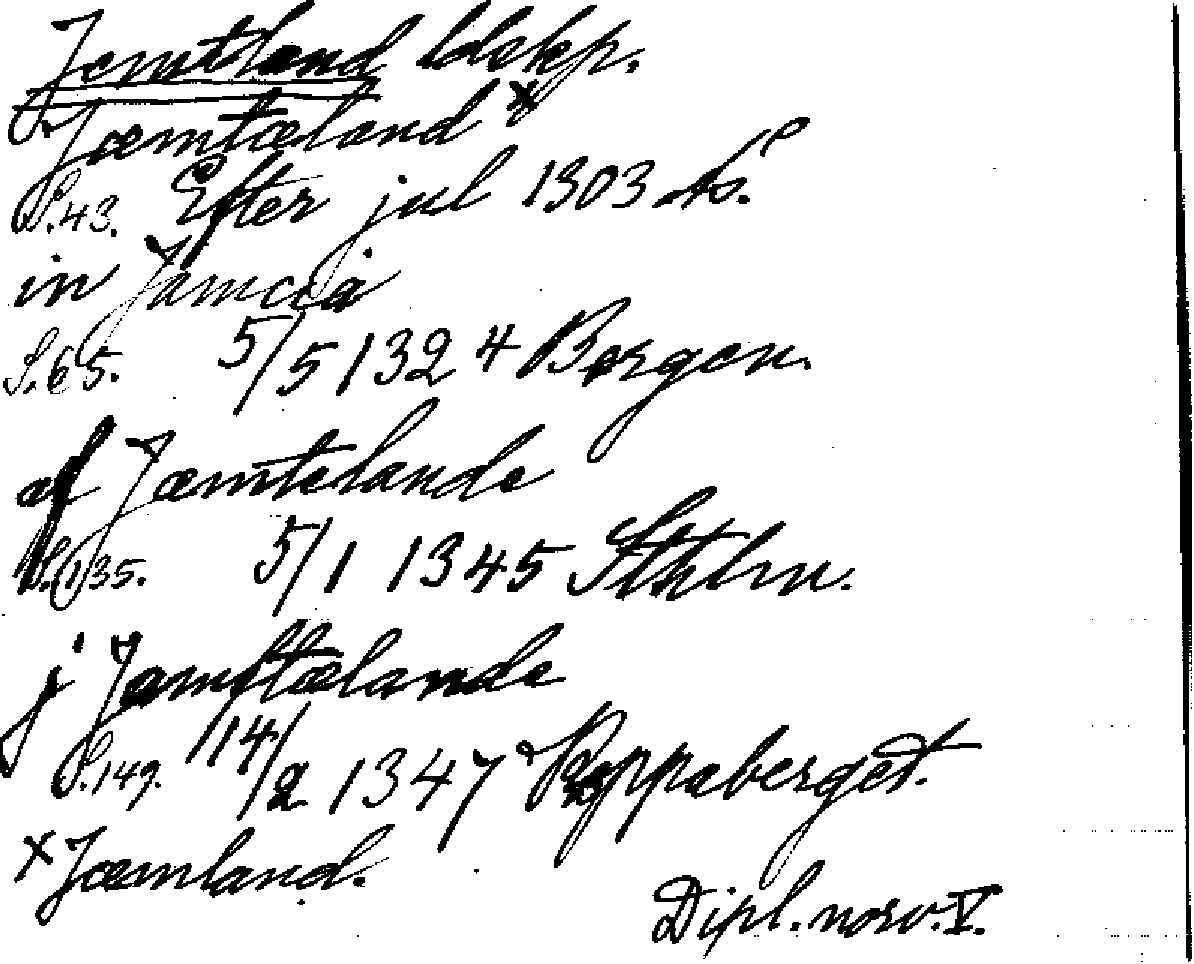 Jemtland ldskp.
Jæmtæland x
S.43. Efter jul 1303
in Jamcia
S.65. 5/5 1324 Bergen.
af Jæmtelande
S.135. 5/1 1345 Sthlm.
j Jæmftælande
S.149. 14/2 1347 Kopparberget.
x Jæmland.
Dipl. norv. V.